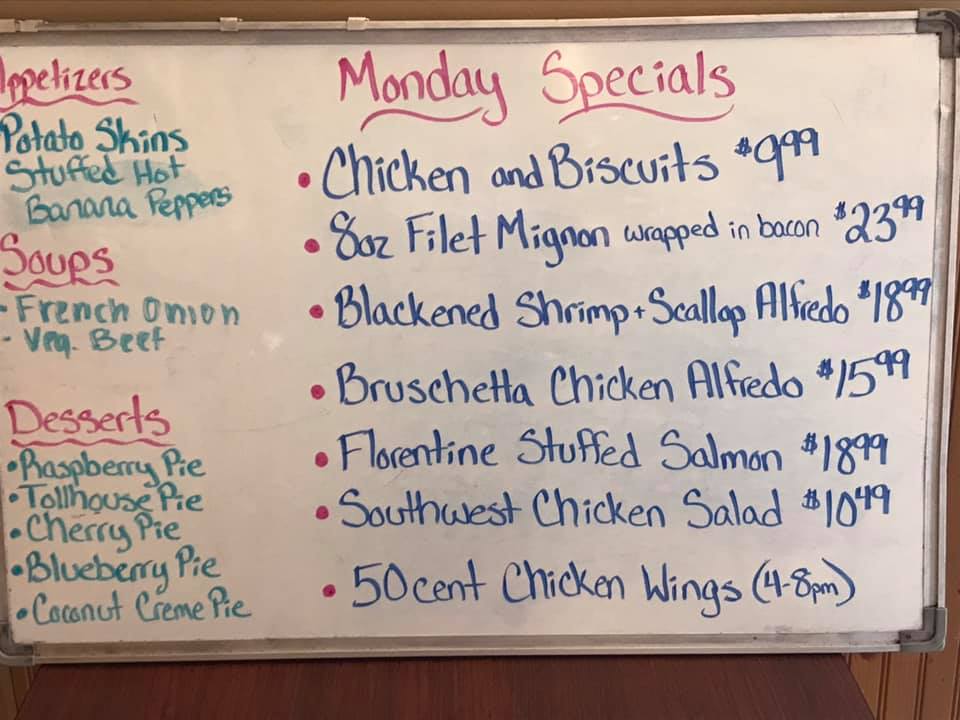 Appetizers
Potato Skins
Stuffed Hot
Banana Peppers
Soups
- French Onion
- Veg. Beef
Desserts
• Raspberry Pie
• Tollhouse Pie
• Cherry Pie
• Blueberry Pie
• Coconut Creme Pie
Monday Specials
• Chicken and Biscuits $9.99
• 8oz Filet Mignon wrapped in bacon $23.99
• Blackened Shrimp + Scallop Alfredo $18.99
• Bruschetta Chicken Alfredo $15.99
• Florentine Stuffed Salmon $18.99
• Southwest Chicken Salad $10.49
• 50 cent Chicken Wings (4-8pm)